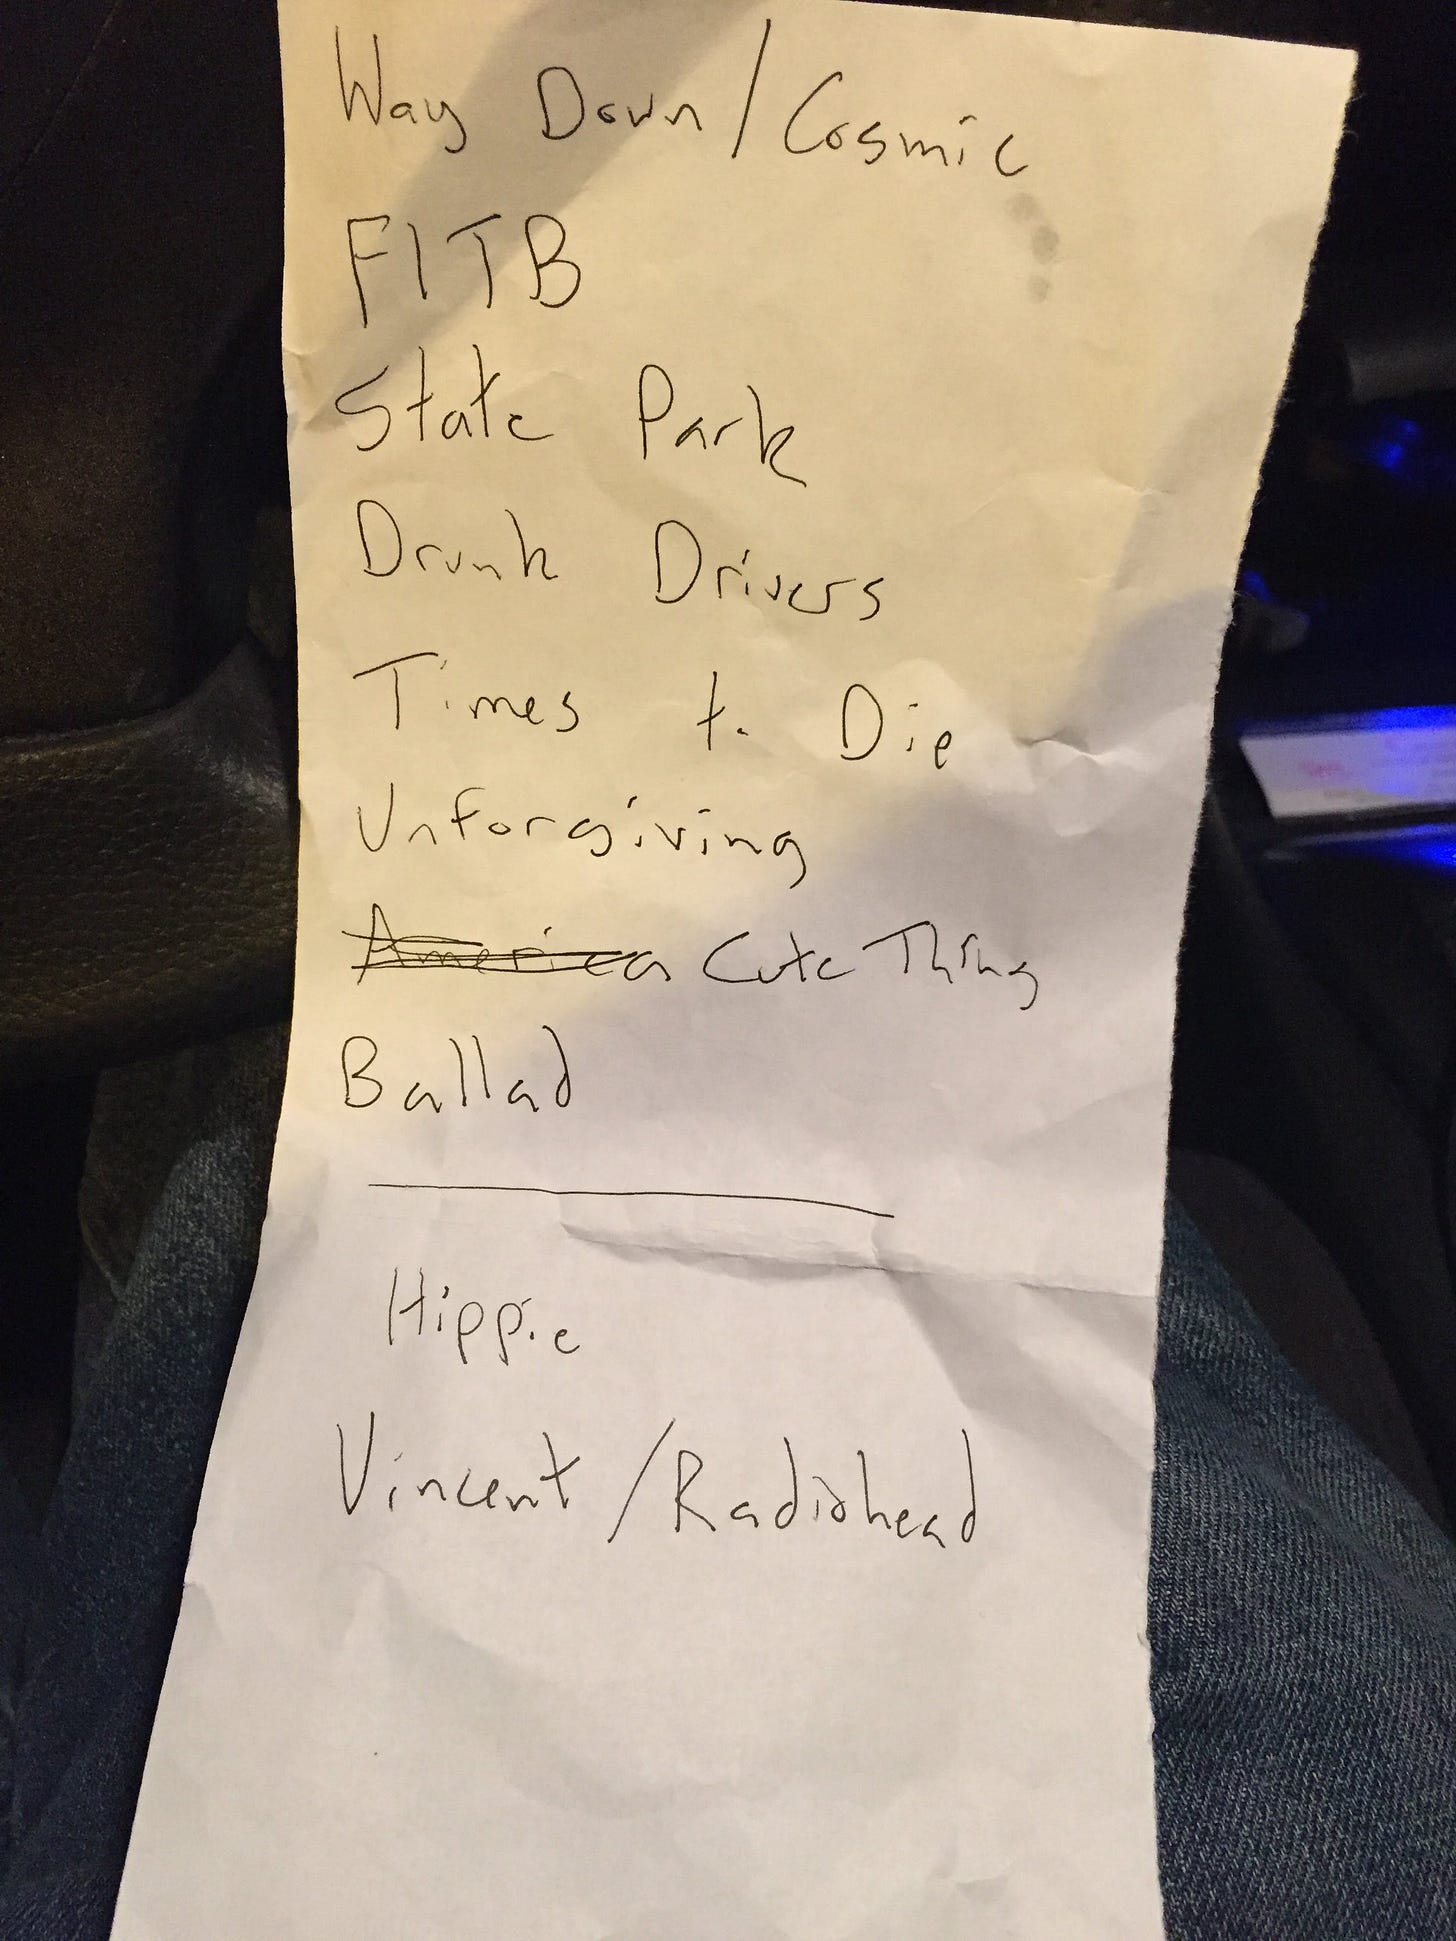 Way Down / Cosmic
FITB
State Park
Drunk Drivers
Times to Die
Unforgiving
America Cute Thing
Ballad
Hippie
Vincent / Radiohead